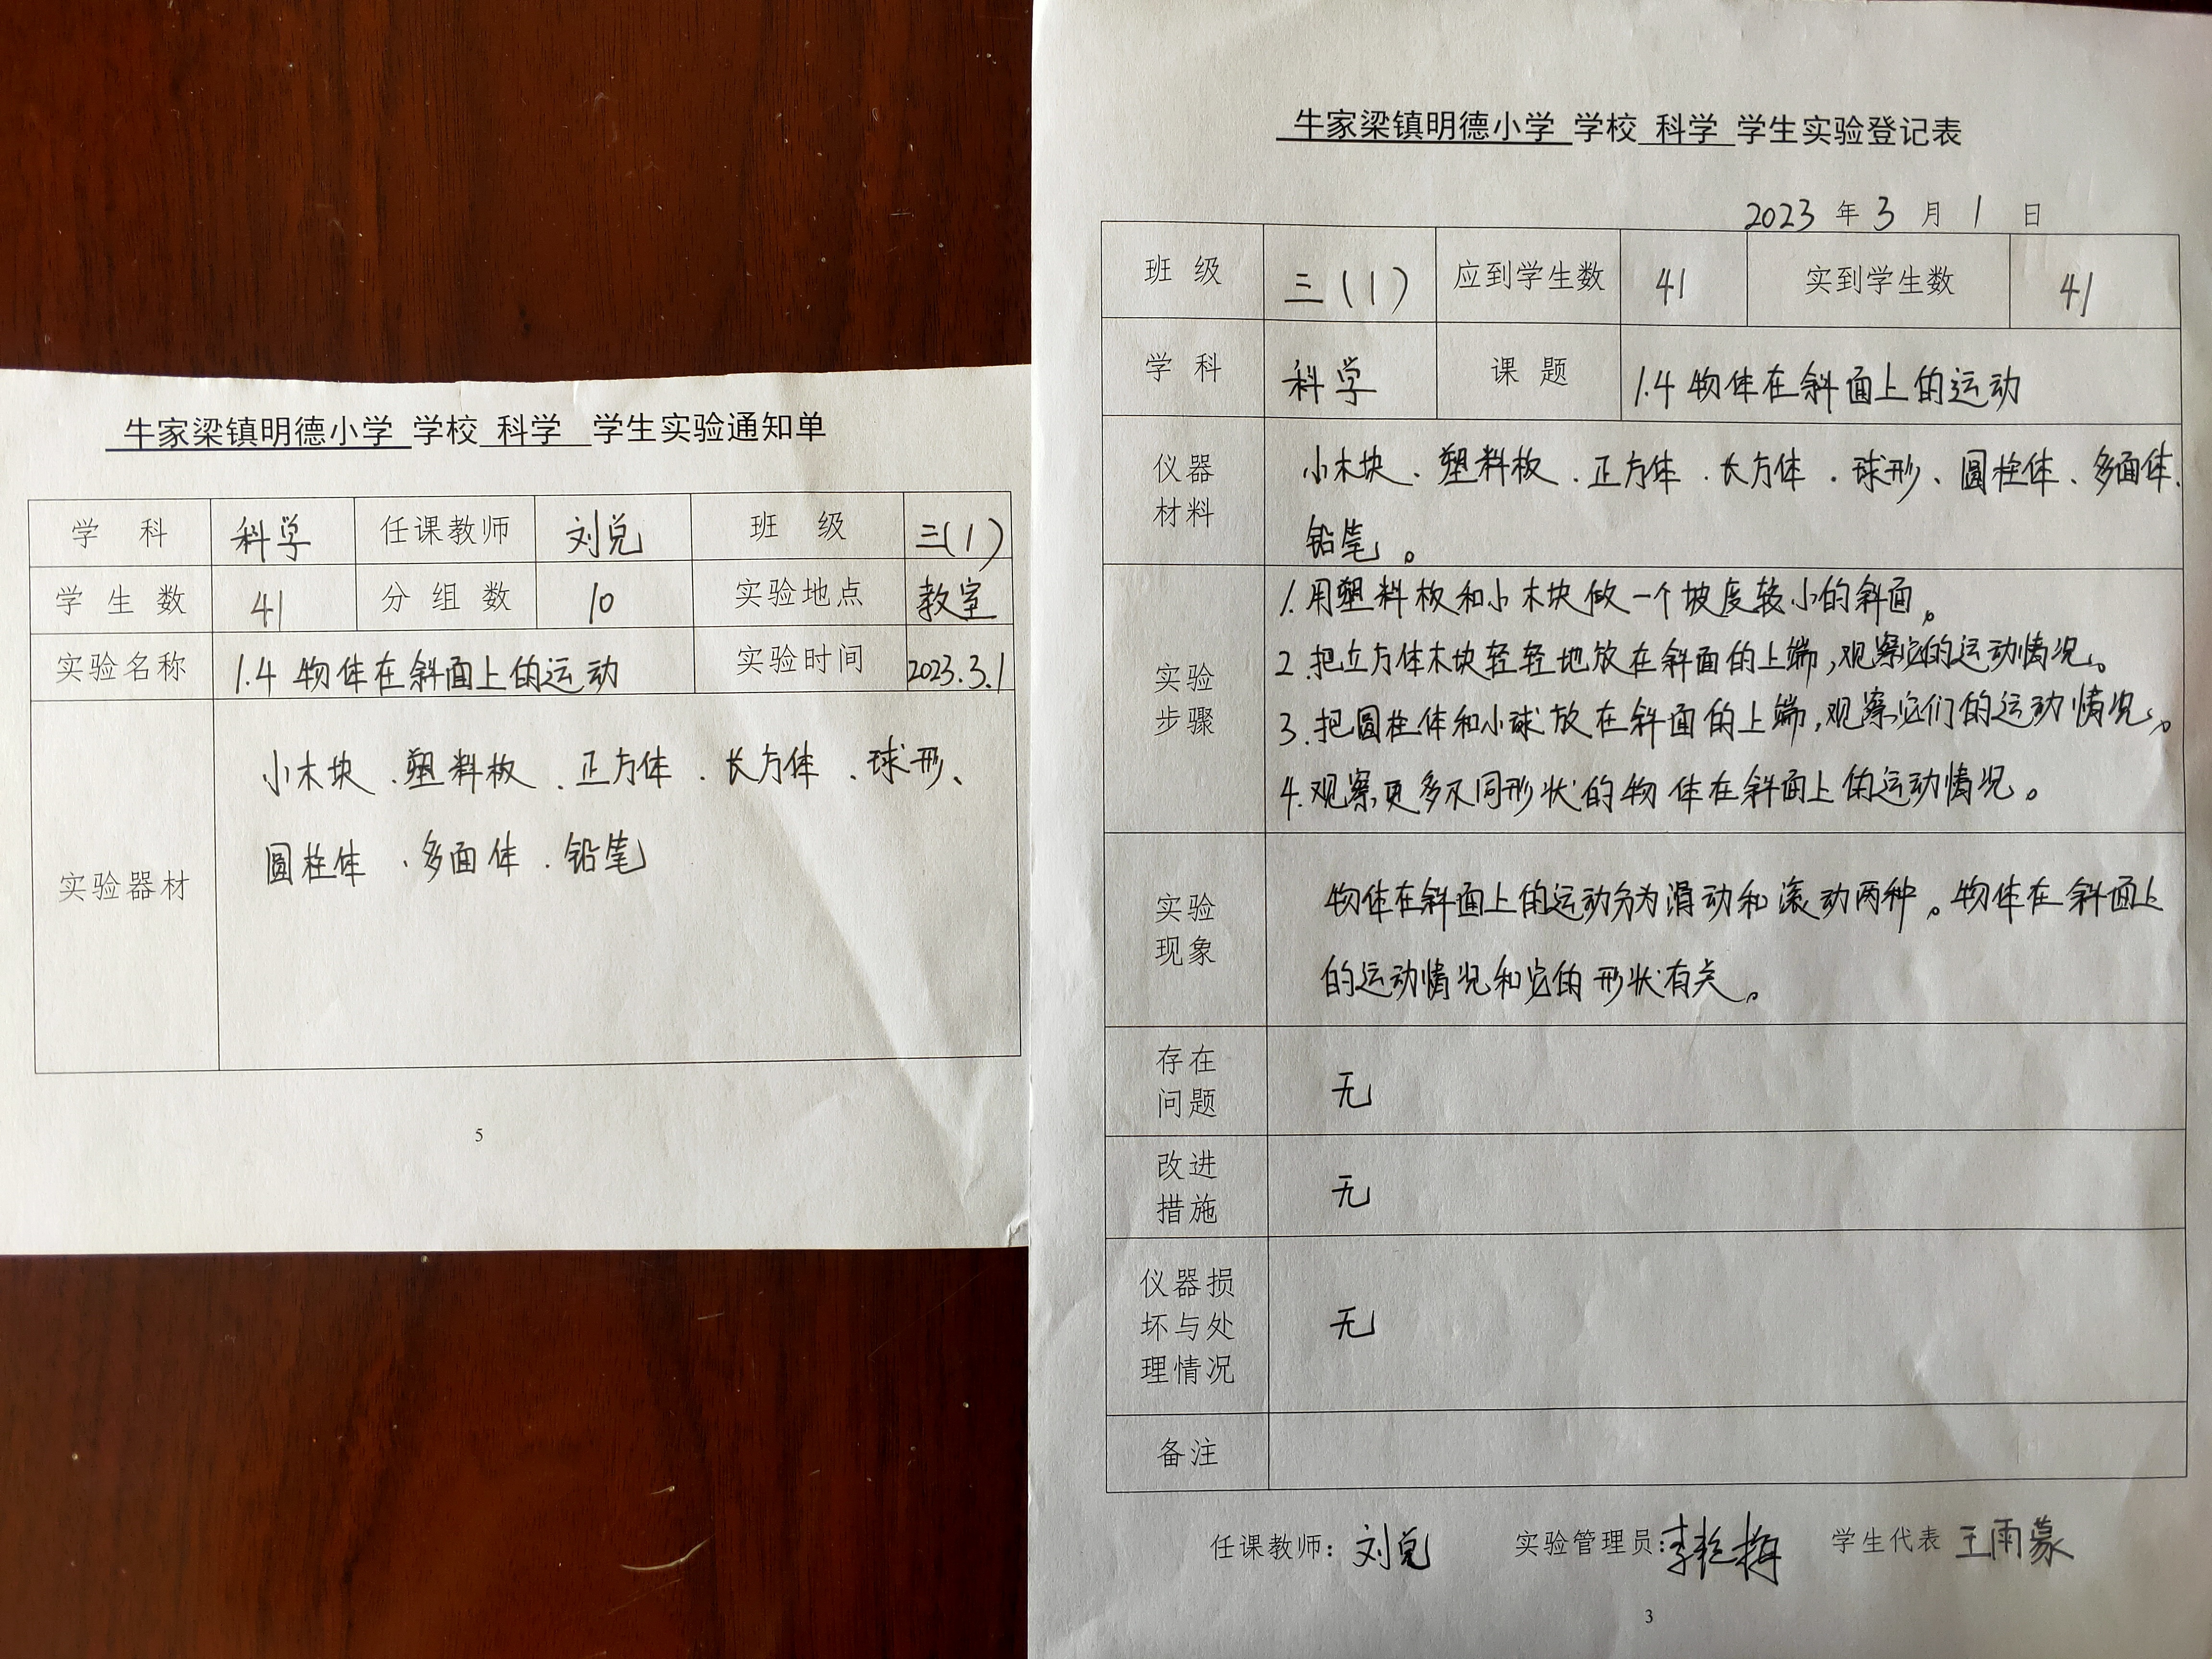 牛家梁镇明德小学 学校 科学 学生实验通知单
学 科 科学 任课教师 刘兑 班 级 三(1)
学 生 数 41 分 组 数 10 实验地点 教室
实验名称 1.4 物体在斜面上的运动 实验时间 2023.3.1
实验器材
小木块、塑料板、正方体、长方体、球形、
圆柱体、多面体、铅笔
5
牛家梁镇明德小学 学校 科学 学生实验登记表
2023 年 3 月 1 日
班 级 三(1) 应到学生数 41 实到学生数 41
学 科 科学 课 题 1.4 物体在斜面上的运动
仪器
材料
小木块、塑料板、正方体、长方体、球形、圆柱体、多面体、
铅笔。
实验
步骤
1.用塑料板和小木块做一个坡度较小的斜面。
2.把立方体木块轻轻地放在斜面的上端,观察它的运动情况。
3.把圆柱体和小球放在斜面的上端,观察它们的运动情况。
4.观察更多不同形状的物体在斜面上的运动情况。
实验
现象
物体在斜面上的运动分为滑动和滚动两种。物体在斜面上
的运动情况和它的形状有关。
存在
问题
无
改进
措施
无
仪器损
坏与处
理情况
无
备注
任课教师: 刘兑 实验管理员: 李艳梅 学生代表 王雨蒙
3